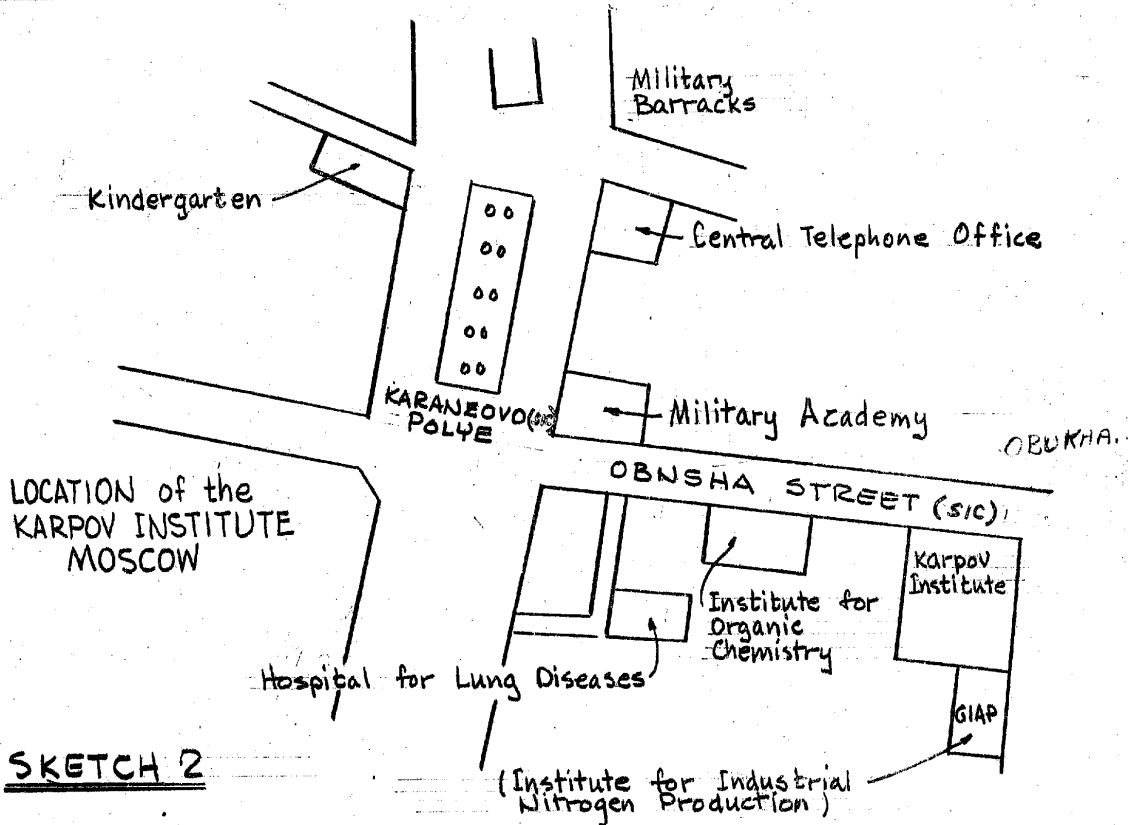 Military
Barracks
Kindergarten
Central Telephone Office
KARANEOVO (SIC)
POLYE
Military Academy
OBUKHA.
OBNSHA STREET (SIC)
LOCATION of the
KARPOV INSTITUTE
MOSCOW
Karpov
Institute
Institute for
Organic
Chemistry
Hospital for Lung Diseases
GIAP
SKETCH 2
(Institute for Industrial
Nitrogen Production)